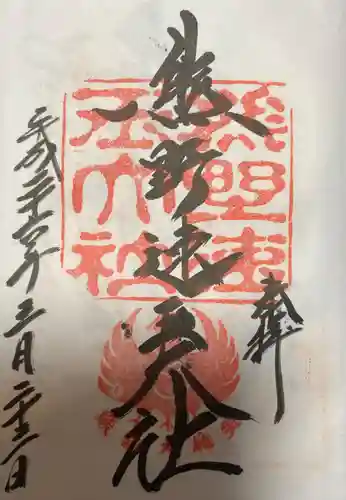 奉拝
熊野速玉大社
平成二十六年三月二十三日
熊野速玉大社